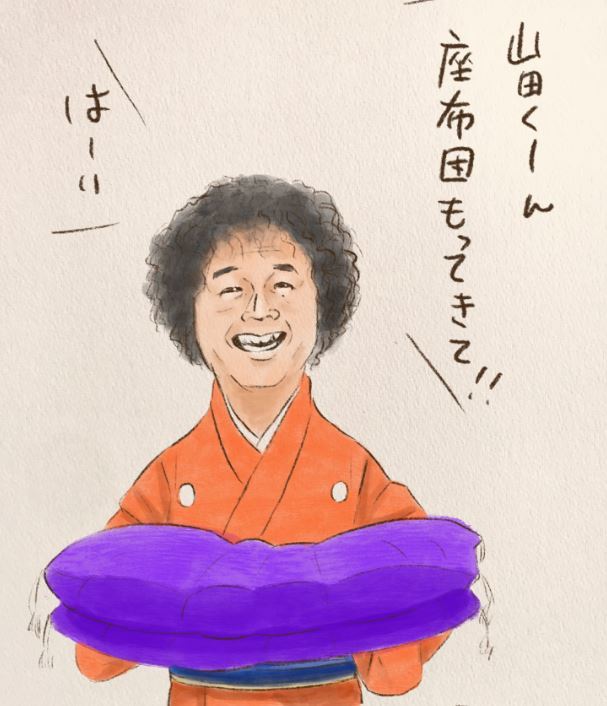 山田くーん
座布団もってきて!!
はーい